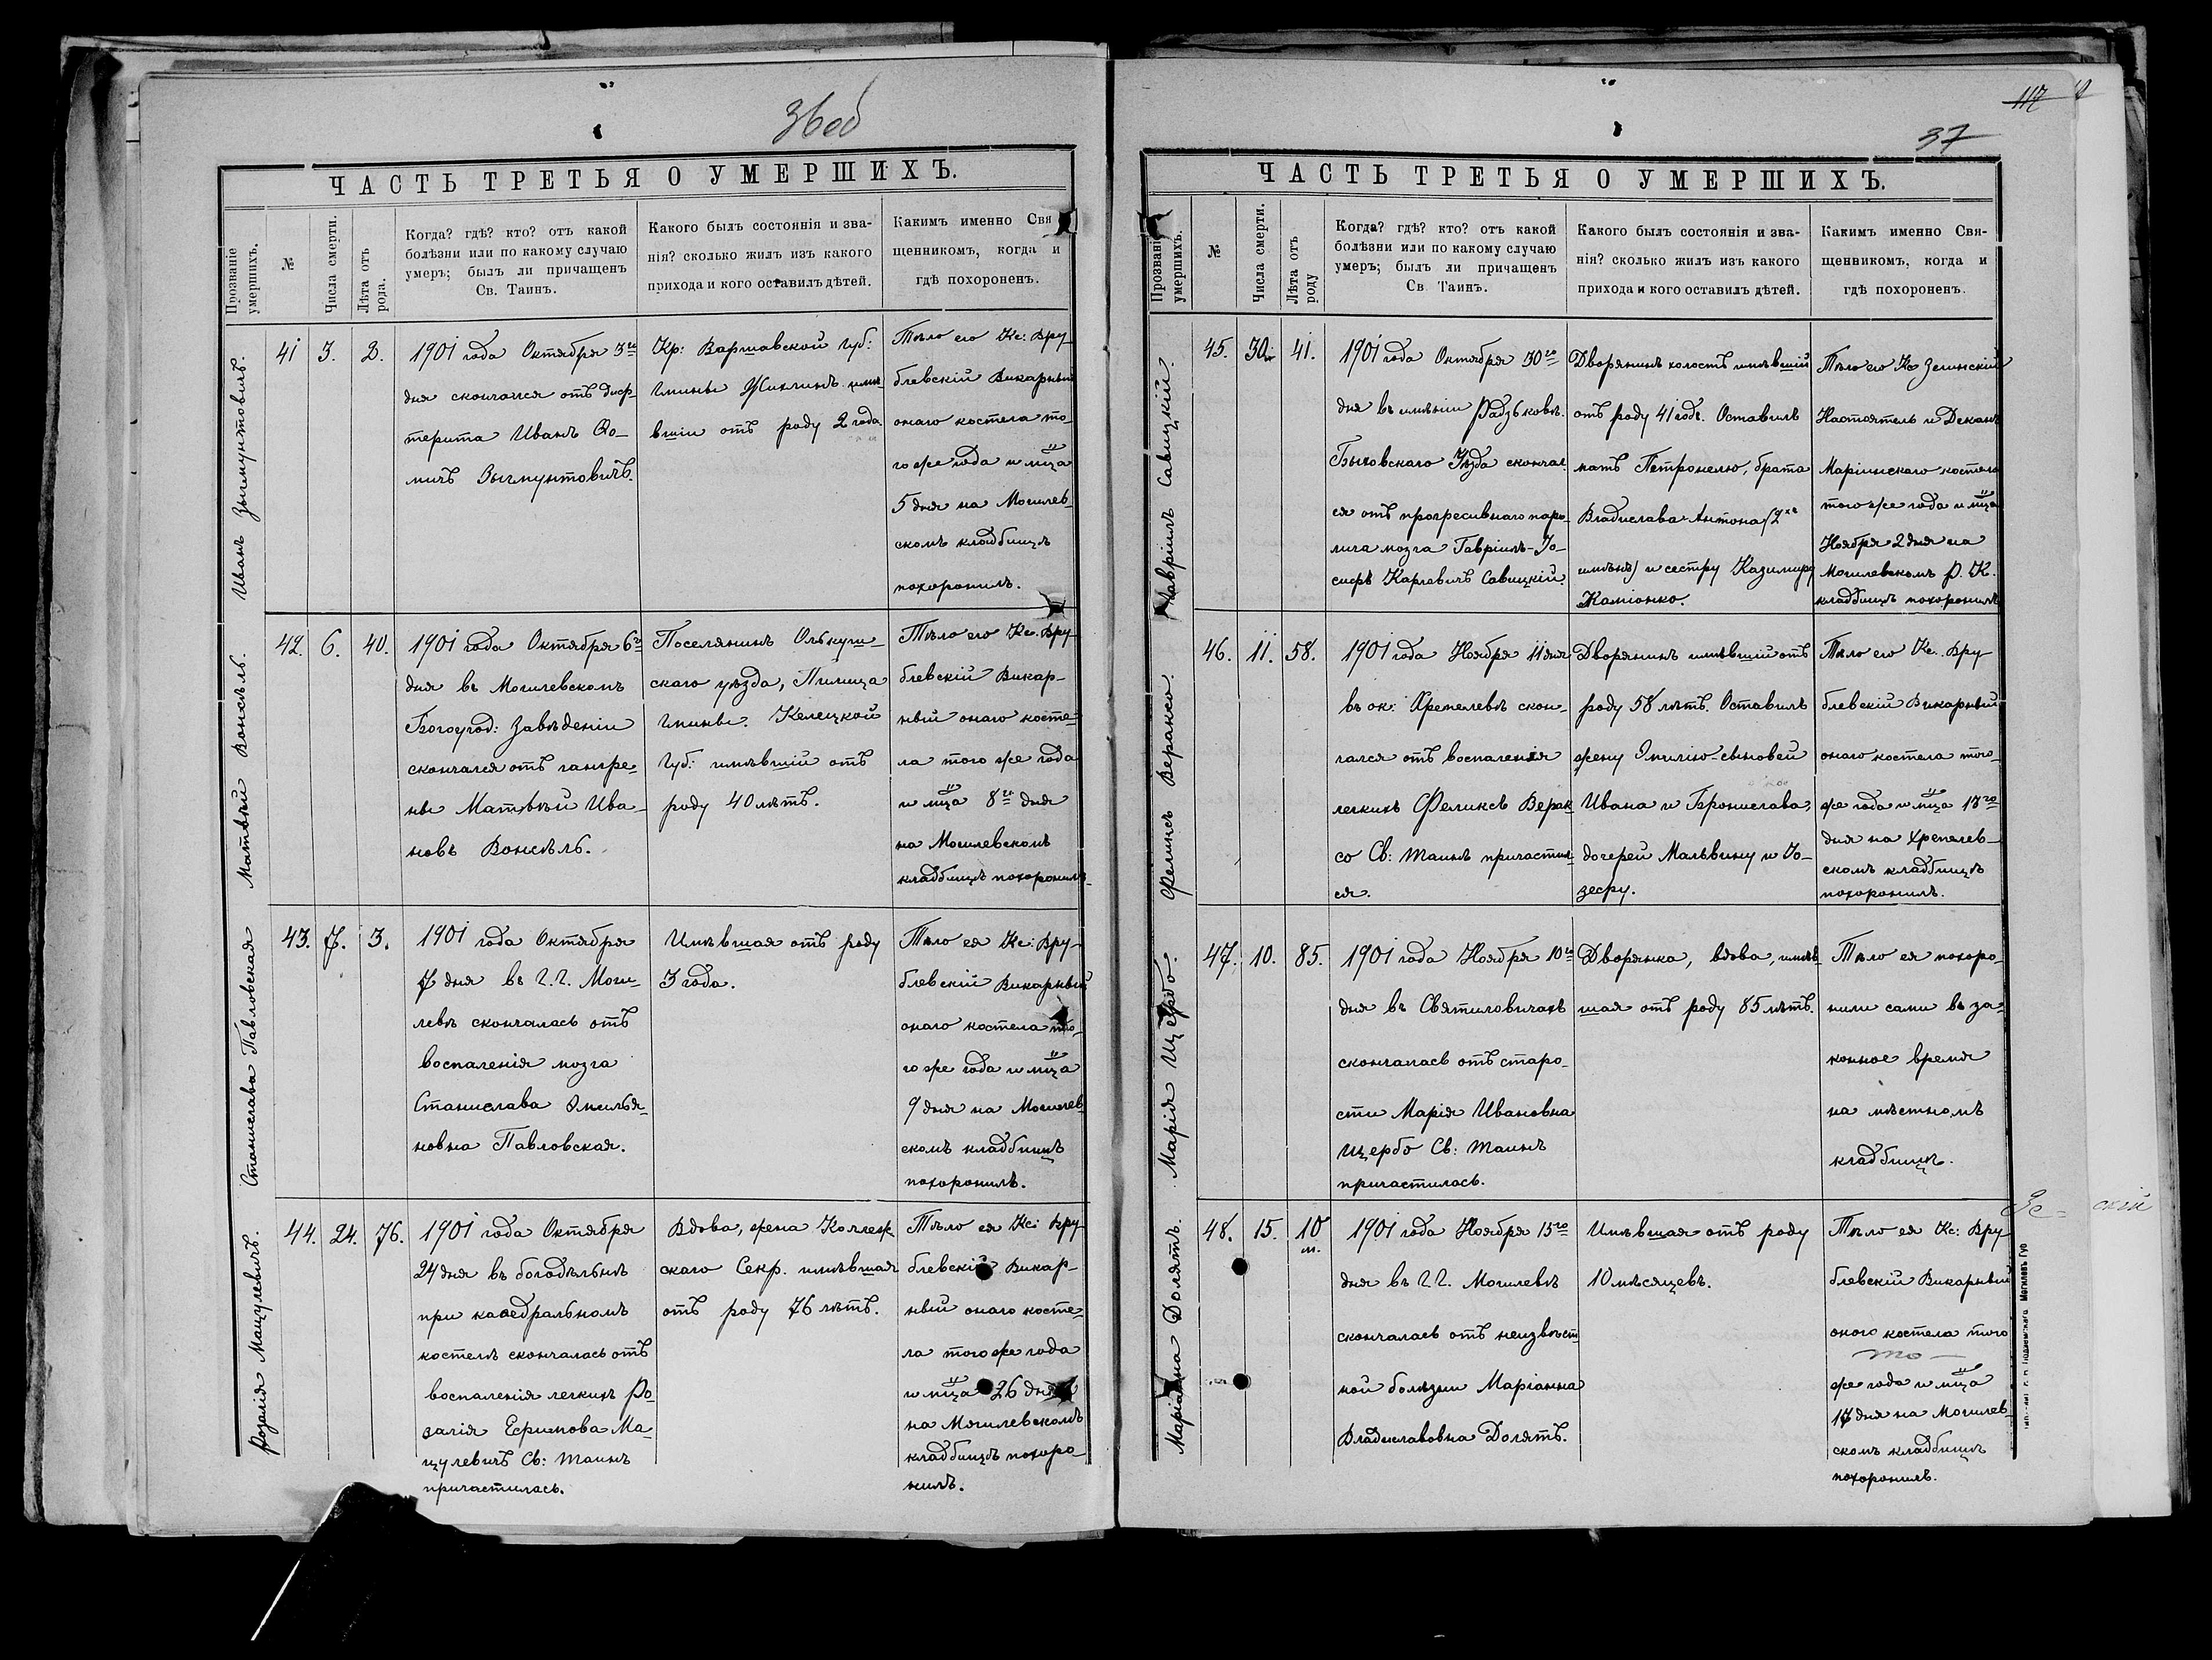 36об
ЧАСТЬ ТРЕТЬЯ О УМЕРШИХЪ.
Прозваніе умершихъ.
№
Числа смерти.
Лѣта отъ рода.
Когда? гдѣ? кто? отъ какой
болѣзни или по какому случаю
умеръ; былъ ли причащенъ
Св. Таинъ.
Какого былъ состоянія и зва-
нія? сколько жилъ изъ какого
прихода и кого оставилъ дѣтей.
Какимъ именно Свя
щенникомъ, когда и
гдѣ похороненъ.
Иванъ Зыгмунтовичъ.
41
3.
2.
1901 года Октября 3го
дня скончался отъ диф-
терита Иванъ Ѳо-
мичъ Зыгмунтовичъ.
Кр: Варшавской губ:
гмины имѣ
вшій отъ роду 2 года.
Тѣло его Кс: Вру
блевскій Викарный
онаго костела то-
го же года и мца
5 дня на Могилев-
скомъ кладбищѣ
похоронилъ.
Матвѣй Вонсѣль.
42.
6.
40.
1901 года Октября 6го
дня въ Могилевскомъ
Богоугод: Заведеніи
скончался отъ гангре-
ны Матвѣй Ива-
новъ Вонсѣль.
Поселянинъ Олькуш-
скаго уѣзда, Пилица
гмины. Келецкой
губ: имѣвшій отъ
роду 40 лѣтъ.
Тѣло его Кс. Вру
блевскій Викар-
ный онаго косте-
ла того же года
и мца 8го дня
на Могилевскомъ
кладбищѣ похоронилъ
Станислава Павловская
43.
7.
3.
1901 года Октября
7 дня въ г.г. Моги-
левѣ скончалась отъ
воспаленія мозга
Станислава Эмилья-
новна Павловская.
Имѣвшая отъ роду
3 года.
Тѣло ея Кс: Вру-
блевскій Викарный
онаго костела то-
го же года и мца
9 дня на Могилев-
скомъ кладбищѣ
похоронилъ.
Розалія Мацулевичъ.
44.
24.
76.
1901 года Октября
24 дня въ богадѣльнѣ
при каѳедральномъ
костелѣ скончалась отъ
воспаленія легкихъ Ро
залія Ефимова Ма-
цулевичъ Св: Таинъ
причастилась.
Вдова, жена Коллеж-
скаго Секр. имѣвшая
отъ роду 76 лѣтъ.
Тѣло ея Кс: Вру
блевскій Викар-
ный онаго косте-
ла того же года
и мца 26 дня
на Могилевскомъ
кладбищѣ похоро-
нилъ.
117
37
ЧАСТЬ ТРЕТЬЯ О УМЕРШИХЪ.
Прозваніе умершихъ.
№
Числа смерти.
Лѣта отъ роду
Когда? гдѣ? кто? отъ какой
болѣзни или по какому случаю
умеръ; былъ ли причащенъ
Св Таинъ.
Какого былъ состоянія и зва-
нія? сколько жилъ изъ какого
прихода и кого оставилъ дѣтей.
Какимъ именно Свя-
щенникомъ, когда и
гдѣ похороненъ.
Гавріилъ Савицкій.
45.
30.
41.
1901 года Октября 30го
дня въ имѣніи Радзьковѣ.
Быховскаго Уѣзда скончал
ся отъ прогресивнаго пара-
лича мозга Гавріилъ-Іо-
сифъ Карловичъ Савицкій.
Дворянинъ холостъ имѣвшій
отъ роду 41 годъ. Оставилъ
мать Петронелю, брата
Владислава-Антона (2хъ
имянъ) и сестру Казимиру
Каміонко.
Тѣло его Кс Зелинскій
Настоятель и Деканъ
Маріинскаго костела
того же года и мца
Ноября 2 дня на
Могилевскомъ Р. К.
кладбищѣ похоронилъ
Феликсъ Вераксо.
46.
11.
58.
1901 года Ноября 11 дня
въ ок: Хрепелевѣ скон-
чался отъ воспаленія
легкихъ Феликсъ Верак
со Св: Таинъ причастил
ся.
Дворянинъ имѣвшій отъ
роду 58 лѣтъ. Оставилъ
жену Эмилію-сыновей
Ивана и Бронислава,
дочерей Мальвину и Іо-
зефу.
Тѣло его Кс. Вру
блевскій Викарный
онаго костела того-
же года и мца 13го
дня на Хрепелев-
скомъ кладбищѣ
похоронилъ.
Марія Щербо.
47.
10.
85.
1901 года Ноября 10го
дня въ Святиловичахъ
скончалась отъ старо-
сти Марія Ивановна
Щербо Св: Таинъ
причастилась.
Дворянка, вдова, имѣв
шая отъ роду 85 лѣтъ.
Тѣло ея похоро-
нили сами въ за-
конное время
на мѣстномъ
кладбищѣ.
Маріанна Долятъ.
48.
15.
10
м.
1901 года Ноября 15го
дня въ г.г. Могилевѣ
скончалась отъ неизвѣст
ной болѣзни Маріанна
Владиславовна Долятъ.
Имѣвшая отъ роду
10 мѣсяцевъ.
Тѣло ея Кс: Вру
блевскій Викарный
оного костела того
то-
же года и мца
17 дня на Могилев-
скомъ кладбищѣ
похоронилъ.
Могилевъ Губ